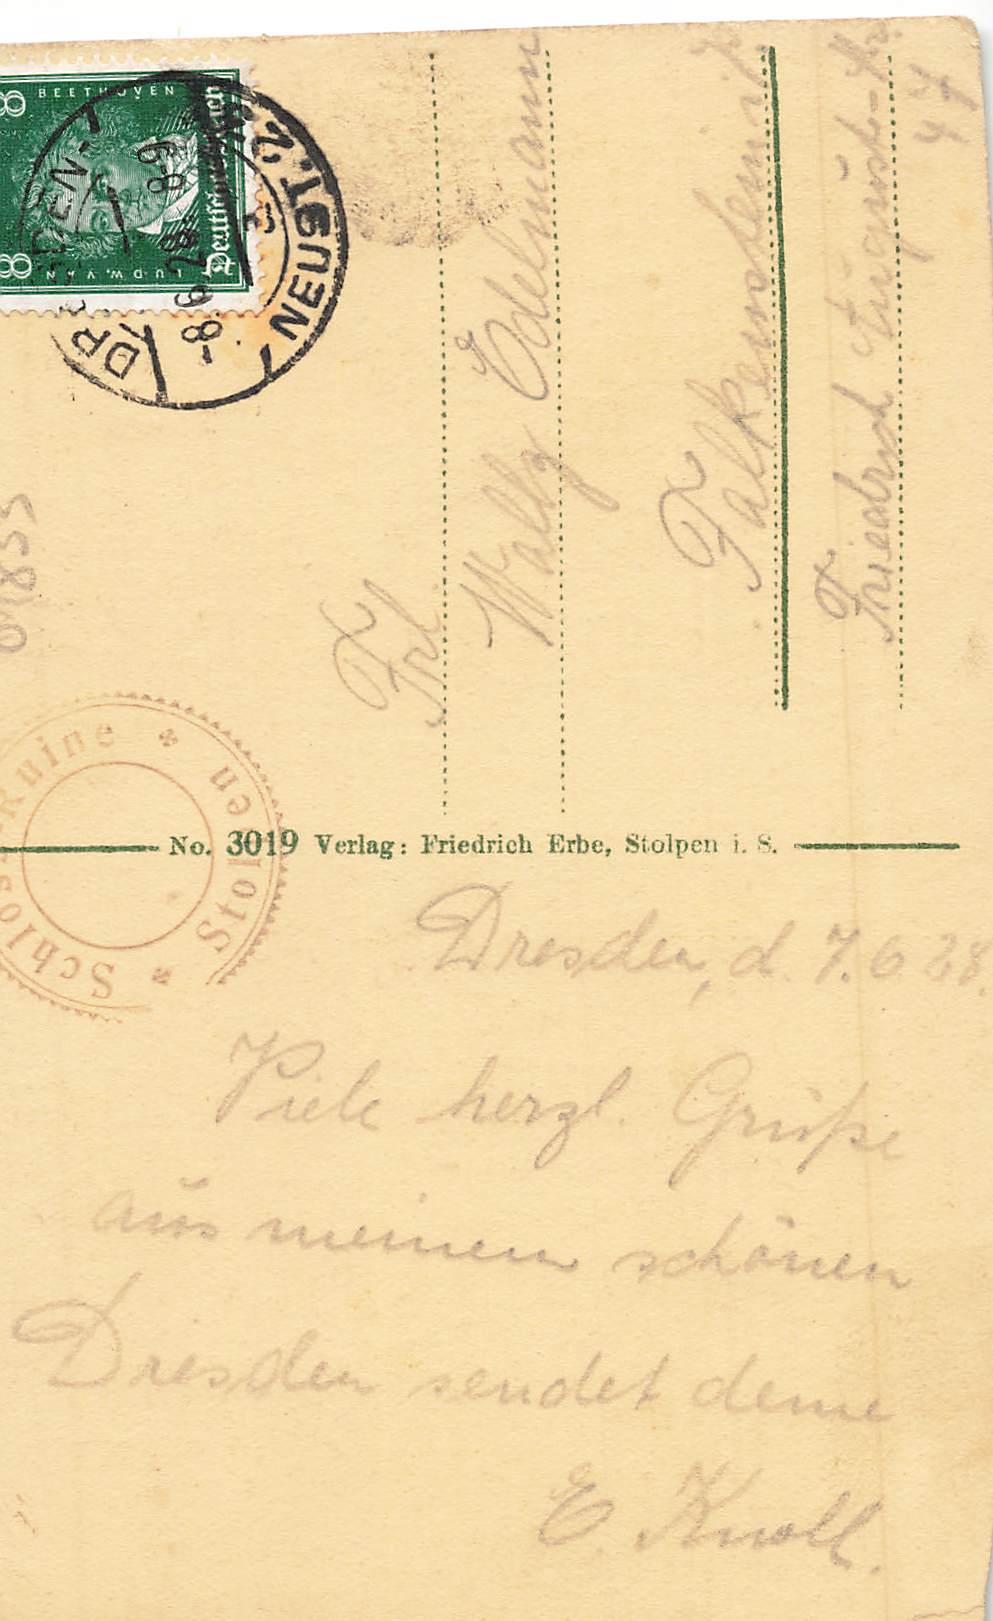 Dresden, d. 7.6.28.
Viele herzl. Grüße
aus meinem schönen
Dresden sendet deine
E. Knoll.
No. 3019 Verlag: Friedrich Erbe, Stolpen i. S.
Frl.
Wally Edelmann
Falkenstein i/
Friedrich August-Str
47
BEETHOVEN
LUDW. VAN
8
8
Deutsches Reich
DRESDEN-
NEUST. 2
-8.6.28 8-9
Schloss-Ruine * Stolpen *